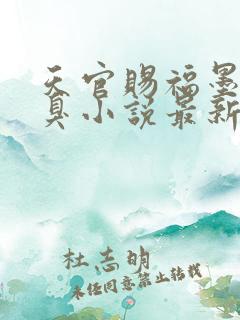 天官赐福墨
真小说最新
杜志明
未经同意禁止转载